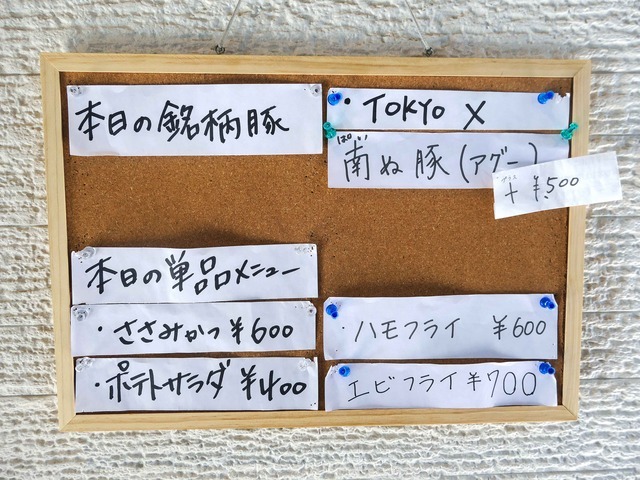 本日の銘柄豚
・TOKYO X
南ぬ豚(アグー)
+ ¥500
本日の単品メニュー
・ささみかつ ¥600
・ポテトサラダ ¥400
・ハモフライ ¥600
エビフライ ¥700